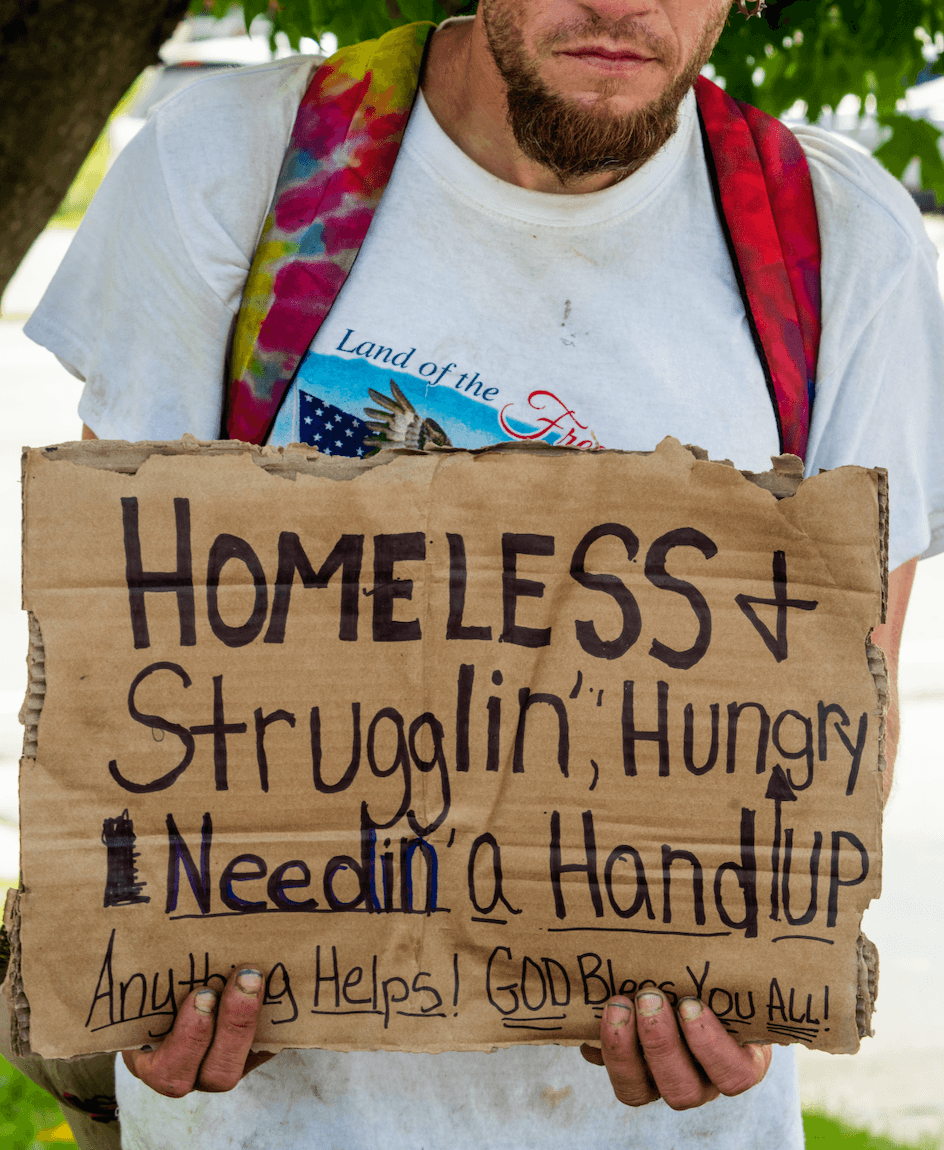 Land of the
HOMELESS &
Strugglin', Hungry
Needin' a Hand UP
Anything Helps! GOD Bless You ALL!